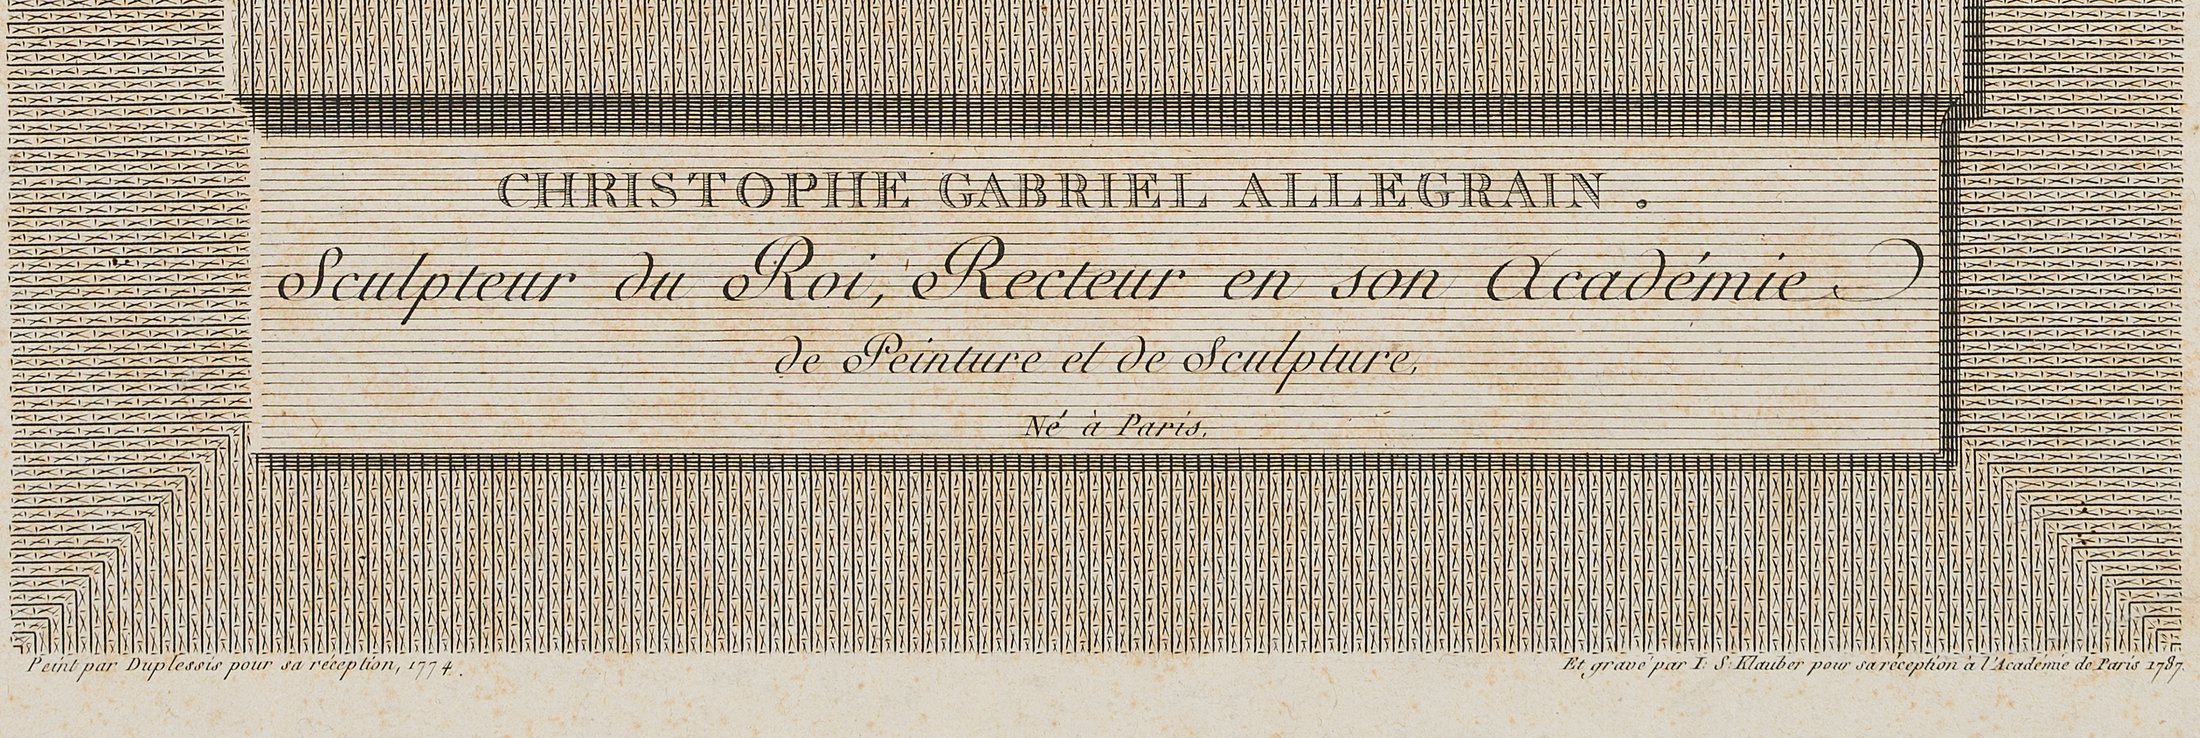 CHRISTOPHE GABRIEL ALLEGRAIN.
Sculpteur du Roi, Recteur en son Académie
de Peinture et de Sculpture,
Né à Paris.
Peint par Duplessis pour sa réception, 1774.
Et gravé par I. S. Klauber pour sa réception à l'Académie de Paris 1787.